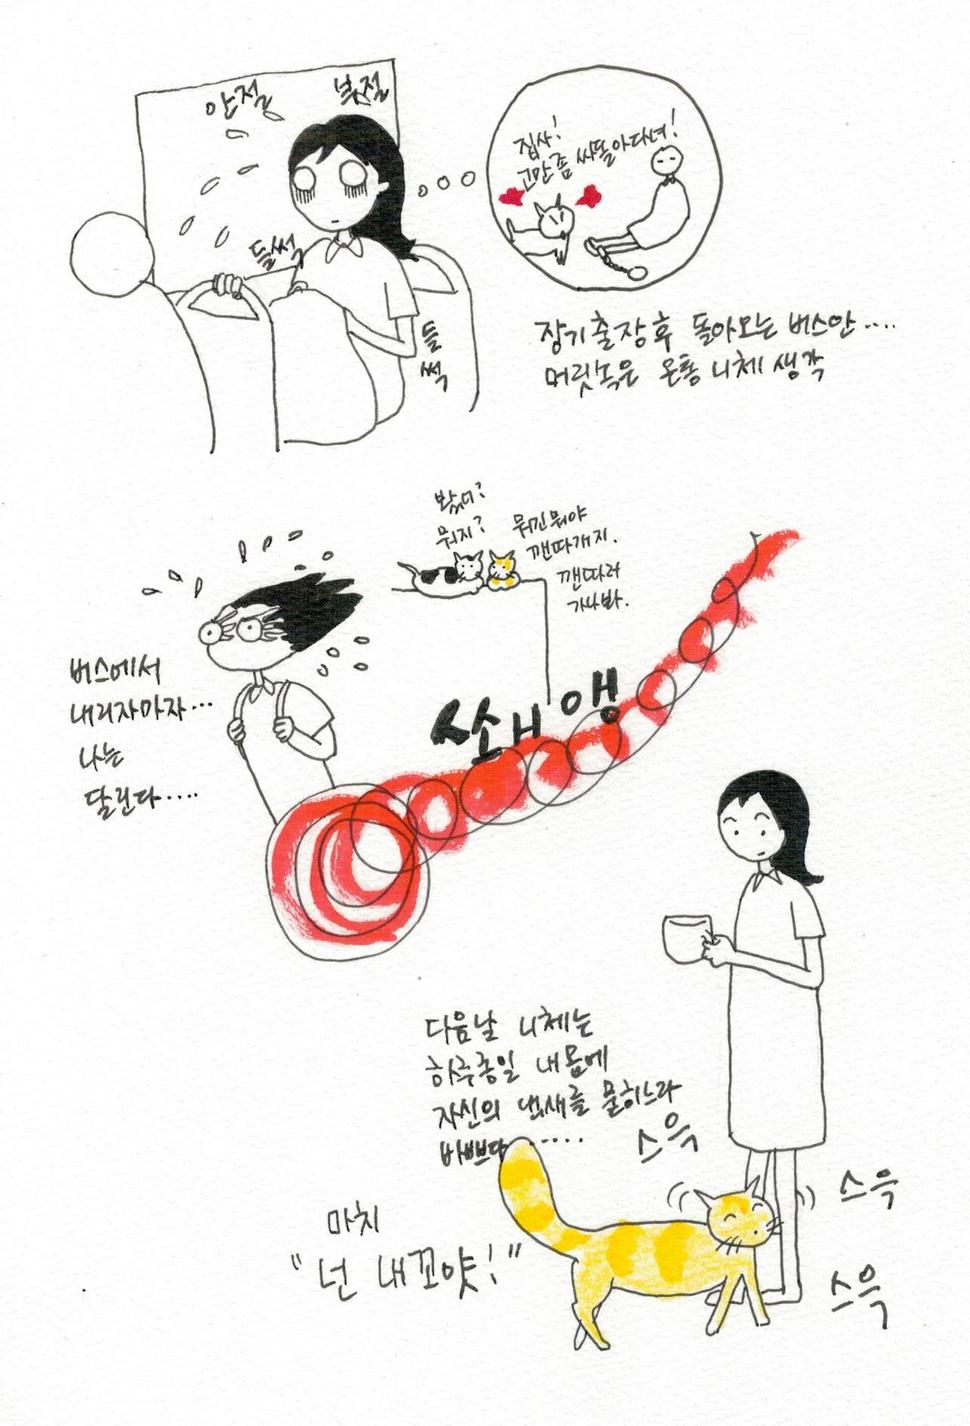 안절
부절
집사!
고만좀 싸돌아다녀!
들썩
들
썩
장기출장후 돌아오는 버스안....
머릿속은 온통 니체 생각
봤어?
뭐지?
뭐긴뭐야
깬따개지.
깬따러
가나봐.
버스에서
내리자마자...
나는
달린다....
쏘애앵
다음날 니체는
하루종일 내몸에
자신의 냄새를 묻히느라
바쁘다.....
스윽
스윽
스윽
마치
"넌 내꼬얏!"